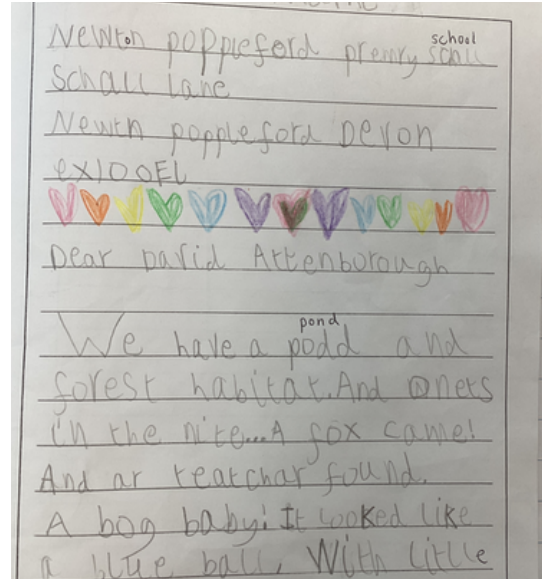 school
Newton poppleford premry scholl
Schall lane
Newtn poppleford Devon
exIOOEL
Dear David Attenborough
pond
We have a podd and
forest habitat. And onets
in the nite...A fox came!
And ar teatchar found.
A bog baby! It looked like
a blue ball. With little